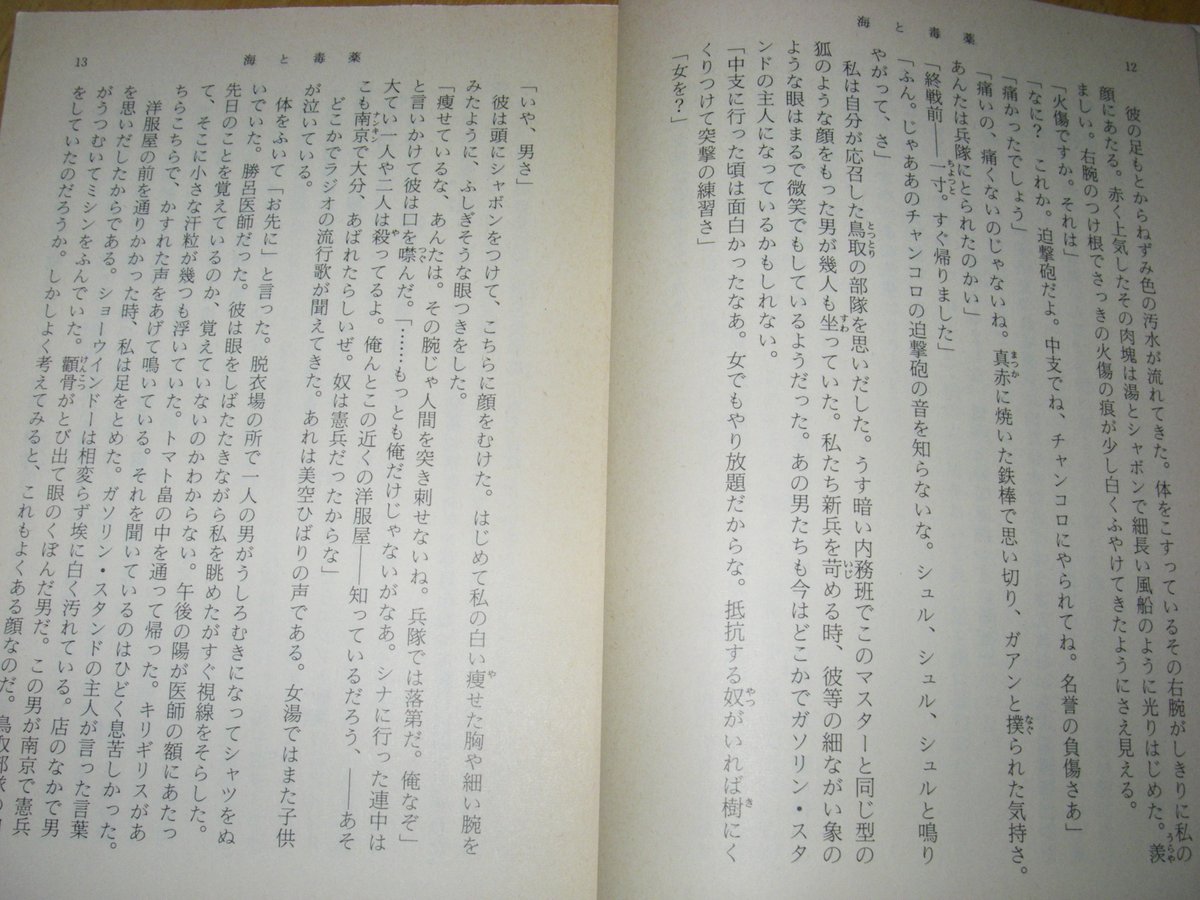 12
海と毒薬
彼の足もとからねずみ色の汚水が流れてきた。体をこすっているその右腕がしきりに私の
顔にあたる。赤く上気したその肉塊は湯とシャボンで細長い風船のように光りはじめた。羨
ましい。右腕のつけ根でさっきの火傷の痕が少し白くふやけてきたようにさえ見える。
「火傷ですか。それは」
「なに? これか。迫撃砲だよ。中支でね、チャンコロにやられてね。名誉の負傷さあ」
「痛かったでしょう」
「痛いの、痛くないのじゃないね。真赤に焼いた鉄棒で思い切り、ガアンと撲られた気持さ。
あんたは兵隊にとられたのかい」
「終戦前――一寸。すぐ帰りました」
「ふん。じゃああのチャンコロの迫撃砲の音を知らないな。シュル、シュル、シュルと鳴り
やがって、さ」
私は自分が応召した鳥取の部隊を思いだした。うす暗い内務班でこのマスターと同じ型の
狐のような顔をもった男が幾人も坐っていた。私たち新兵を苛める時、彼等の細ながい象の
ような眼はまるで微笑でもしているようだった。あの男たちも今はどこかでガソリン・スタ
ンドの主人になっているかもしれない。
「中支に行った頃は面白かったなあ。女でもやり放題だからな。抵抗する奴がいれば樹にく
くりつけて突撃の練習さ」
「女を?」
海と毒薬
13
「いや、男さ」
彼は頭にシャボンをつけて、こちらに顔をむけた。はじめて私の白い痩せた胸や細い腕を
みたように、ふしぎそうな眼つきをした。
「痩せているな、あんたは。その腕じゃ人間を突き刺せないね。兵隊では落第だ。俺なぞ」
と言いかけて彼は口を噤んだ。「……もっとも俺だけじゃないがなあ。シナに行った連中は
大てい一人や二人は殺ってるよ。俺んとこの近くの洋服屋――知っているだろう、――あそ
こも南京で大分、あばれたらしいぜ。奴は憲兵だったからな」
どこかでラジオの流行歌が聞えてきた。あれは美空ひばりの声である。女湯ではまた子供
が泣いている。
体をふいて「お先に」と言った。脱衣場の所で一人の男がうしろむきになってシャツをぬ
いでいた。勝呂医師だった。彼は眼をしばたたきながら私を眺めたがすぐ視線をそらした。
先日のことを覚えているのか、覚えていないのかわからない。午後の陽が医師の額にあたっ
て、そこに小さな汗粒が幾つも浮いていた。トマト畠の中を通って帰った。キリギリスがあ
ちらこちらで、かすれた声をあげて鳴いている。それを聞いているのはひどく息苦しかった。
洋服屋の前を通りかかった時、私は足をとめた。ガソリン・スタンドの主人が言った言葉
を思いだしたからである。ショーウインドーは相変らず埃に白く汚れている。店のなかで男
がうつむいてミシンをふんでいた。顴骨がとび出て眼のくぼんだ男だ。この男が南京で憲兵
をしていたのだろうか。しかしよく考えてみると、これもよくある顔なのだ。鳥取部隊の